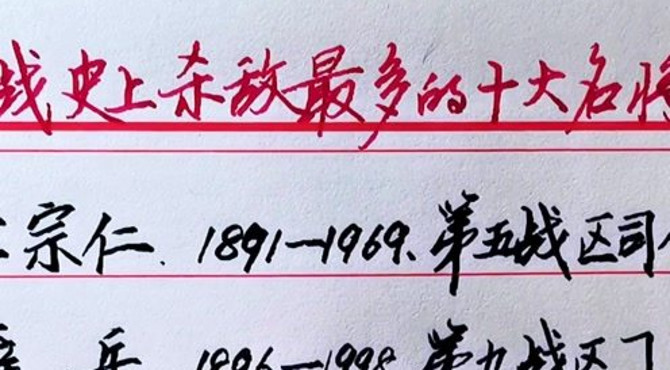 战史上杀敌最多的十大名将
宗仁.1891—1969、第五战区司
岳 1896—1998 第九战区